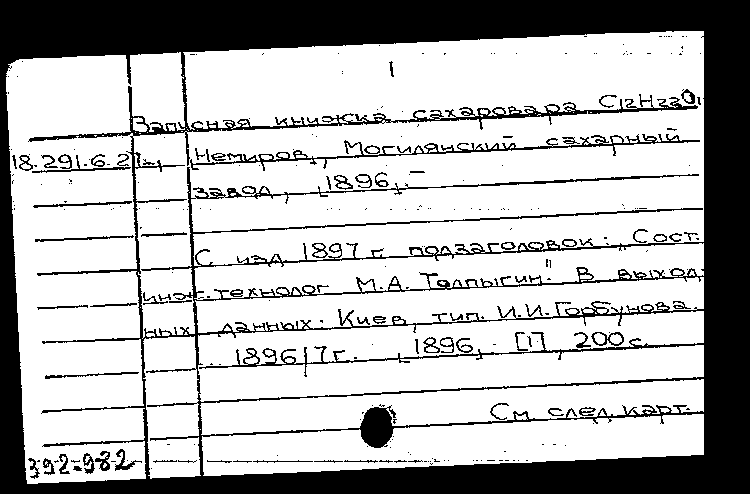 1
Записная книжка сахаровара C12H22O1
18.291.6.2 Немиров, Могилянский сахарный
завод, 1896.-
С изд. 1897 г. подзаголовок: „Сост.
инж.-технолог М.А. Толпыгин". В выход-
ных данных: Киев, тип. И.И. Горбунова.
1896/7 г. 1896. [1], 200 с.
См. след. карт.
392-982